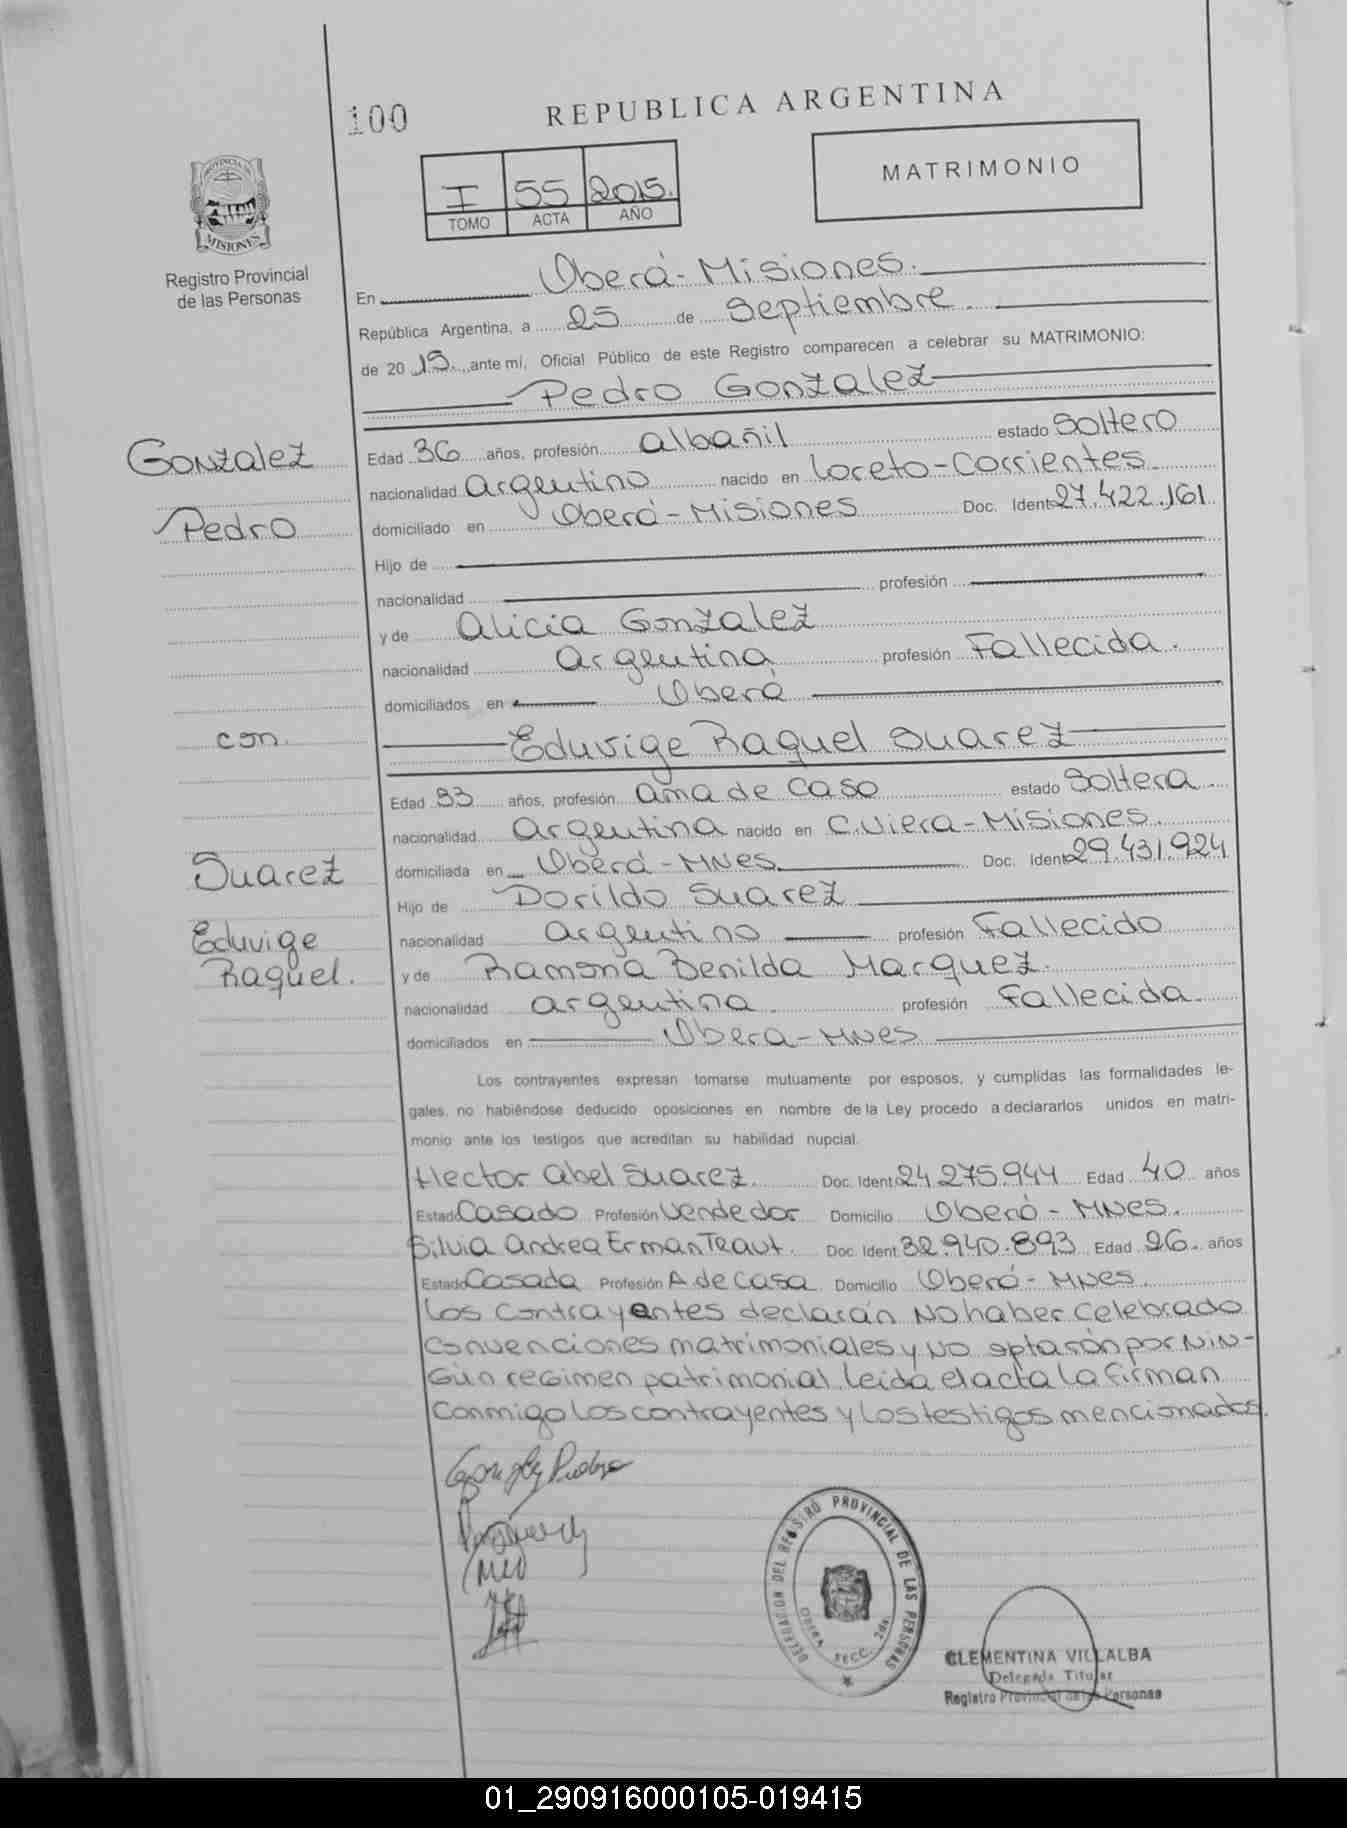 100
REPUBLICA ARGENTINA
I 55 2015.
TOMO ACTA AÑO
MATRIMONIO
PROVINCIA DE
MISIONES
Registro Provincial
de las Personas
En Oberá - Misiones.
República Argentina, a 25 de Septiembre
de 2015. ante mí, Oficial Público de este Registro comparecen a celebrar su MATRIMONIO:
Pedro Gonzalez
Gonzalez
Pedro
Edad 36 años, profesión albañil estado Soltero
nacionalidad Argentino nacido en Loreto-Corrientes
domiciliado en Oberá - Misiones Doc. Ident 27.422.161
Hijo de
nacionalidad profesión
y de Alicia Gonzalez
nacionalidad Argentina profesión Fallecida.
domiciliados en Oberá
con.
Eduvige Raquel Suarez
Edad 33 años, profesión ama de casa estado Soltera
nacionalidad Argentina nacido en C. Viera - Misiones.
Suarez
Eduvige
Raquel.
domiciliada en Oberá - MNES. Doc. Ident 29.431.924
Hijo de Dorildo Suarez
nacionalidad Argentino profesión Fallecido
y de Ramona Benilda Marquez.
nacionalidad argentina profesión Fallecida.
domiciliados en Obera - MNES
Los contrayentes expresan tomarse mutuamente por esposos, y cumplidas las formalidades le-
gales, no habiéndose deducido oposiciones en nombre de la Ley procedo a declararlos unidos en matri-
monio ante los testigos que acreditan su habilidad nupcial.
Hector abel Suarez. Doc. Ident 24.275.944 Edad 40 años
Estado Casado Profesión Vendedor Domicilio Oberá - MNES.
Silvia Andrea ErmanTraut. Doc. Ident 32.940.893 Edad 26. años
Estado Casada Profesión A de Casa Domicilio Oberá - MNES.
Los Contrayentes declarán No haber Celebrado
Convenciones matrimoniales y No optarón por NiN-
gún regimen patrimonial Leida el acta la firman
Conmigo Los contrayentes y Los testigos mencionados.
Gonzalez Pedro
DELEGACION DEL REGISTRO PROVINCIAL DE LAS PERSONAS
OBERA SECC. 2da
CLEMENTINA VILLALBA
Delegada Titular
Registro Provincial de las Personas
01_290916000105-019415